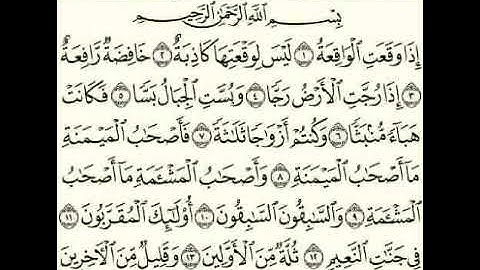 بِسْمِ اللَّهِ الرَّحْمَٰنِ الرَّحِيمِ
إِذَا وَقَعَتِ الْوَاقِعَةُ ١ لَيْسَ لِوَقْعَتِهَا كَاذِبَةٌ ٢ خَافِضَةٌ رَّافِعَةٌ
٣ إِذَا رُجَّتِ الْأَرْضُ رَجًّا ٤ وَبُسَّتِ الْجِبَالُ بَسًّا ٥ فَكَانَتْ
هَبَاءً مُّنْبَثًّا ٦ وَكُنتُمْ أَزْوَاجًا ثَلَاثَةً ٧ فَأَصْحَابُ الْمَيْمَنَةِ
مَا أَصْحَابُ الْمَيْمَنَةِ ٨ وَأَصْحَابُ الْمَشْئَمَةِ مَا أَصْحَابُ
الْمَشْئَمَةِ ٩ وَالسَّابِقُونَ السَّابِقُونَ ١٠ أُولَٰئِكَ الْمُقَرَّبُونَ ١١
فِي جَنَّاتِ النَّعِيمِ ١٢ ثُلَّةٌ مِّنَ الْأَوَّلِينَ ١٣ وَقَلِيلٌ مِّنَ الْآخِرِينَ